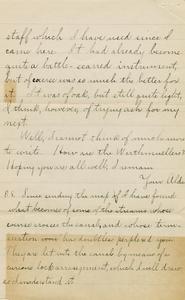 staff which I have used since I
came here. It had already become
quite a battle-scarred instrument,
but of course was so much the better for
it. It was of oak, but still quite light,
I think, however, of trying ash for my
next.
Well, I cannot think of much more
to write. How are the
Hoping you are all well, I remain
Your
P.S. Since sending the map I have found
what becomes of some of the streams whose
course cross the canal, and whose termi-
nation has doubtless perplexed you.
They are let into the canal by means of a
curious lock arrangement, which I will draw
so I understand it